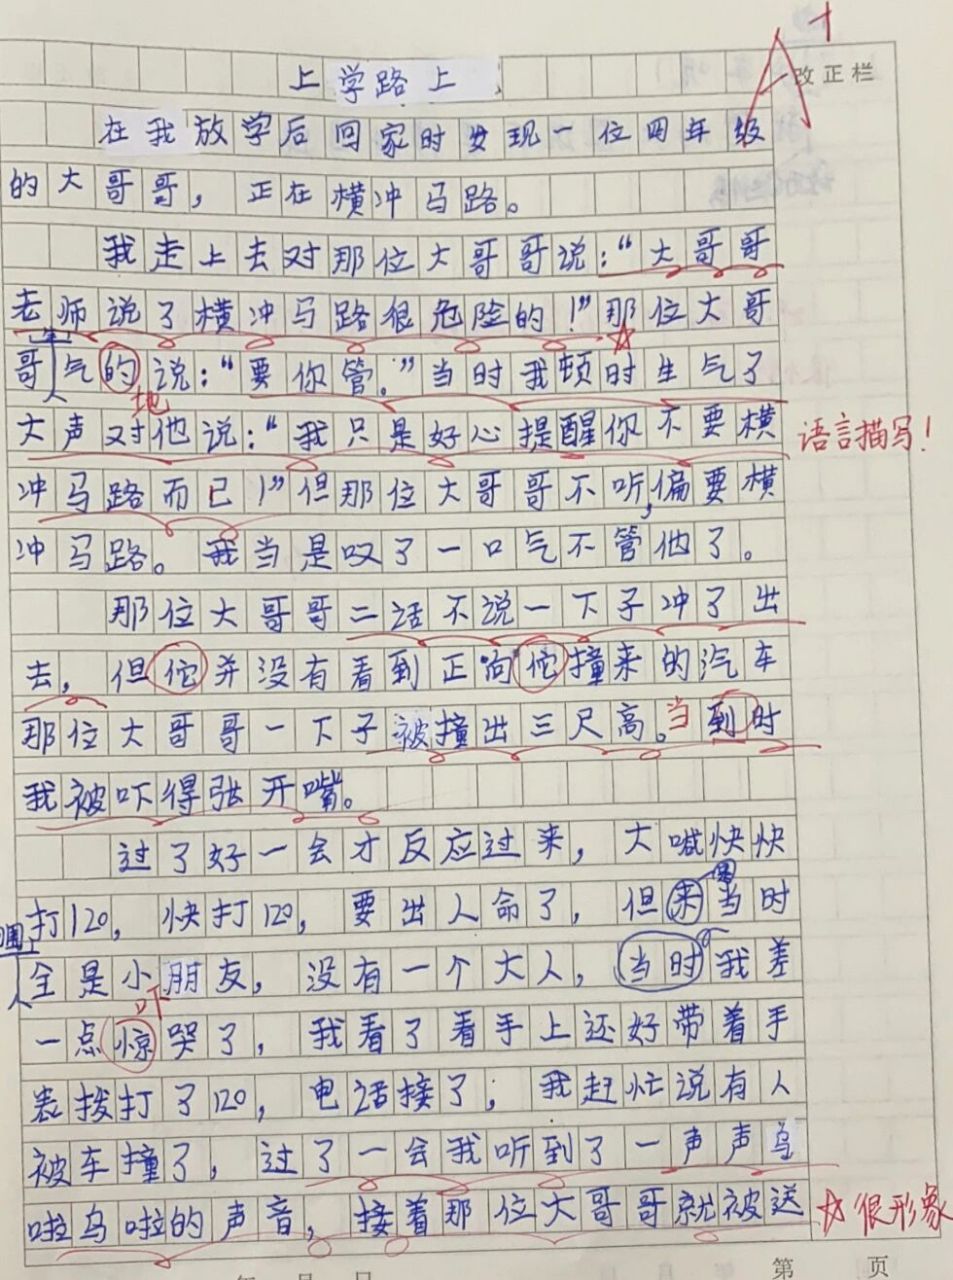 上学路上
改正栏
在我放学后回家时发现一位四年级
的大哥哥，正在横冲马路。
我走上去对那位大哥哥说：“大哥哥
老师说了横冲马路很危险的！”那位大哥
哥气的说：“要你管。”当时我顿时生气了
地
大声对他说：“我只是好心提醒你不要横
语言描写！
冲马路而已！”但那位大哥哥不听，偏要横
冲马路。我当是叹了一口气不管他了。
那位大哥哥二话不说一下子冲了出
去，但他并没有看到正向他撞来的汽车
那位大哥哥一下子被撞出三尺高。当到时
我被吓得张开嘴。
过了好一会才反应过来，大喊快快
打120，快打120，要出人命了，但来当时
全是小朋友，没有一个大人，当时我差
吓
一点惊哭了，我看了看手上还好带着手
表拨打了120，电话接了；我赶忙说有人
被车撞了，过了一会我听到了一声声乌
啦乌啦的声音，接着那位大哥哥就被送
很形象
年 月 日 第 页